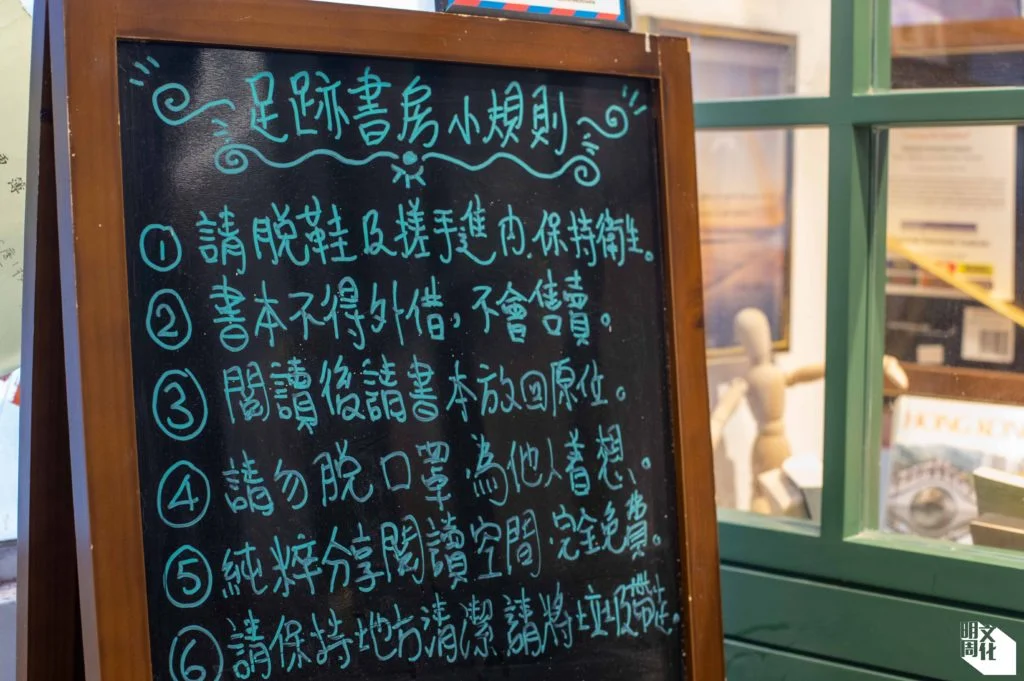 足跡書房小規則
① 請脫鞋及搓手進內.保持衛生。
② 書本不得外借,不會售賣。
③ 閱讀後請書本放回原位。
④ 請勿脫口罩 為他人着想。
⑤ 純粹分享閱讀空間 完全免費。
⑥ 請保持地方清潔 請將垃圾帶走。
HONG KONG
明周文化